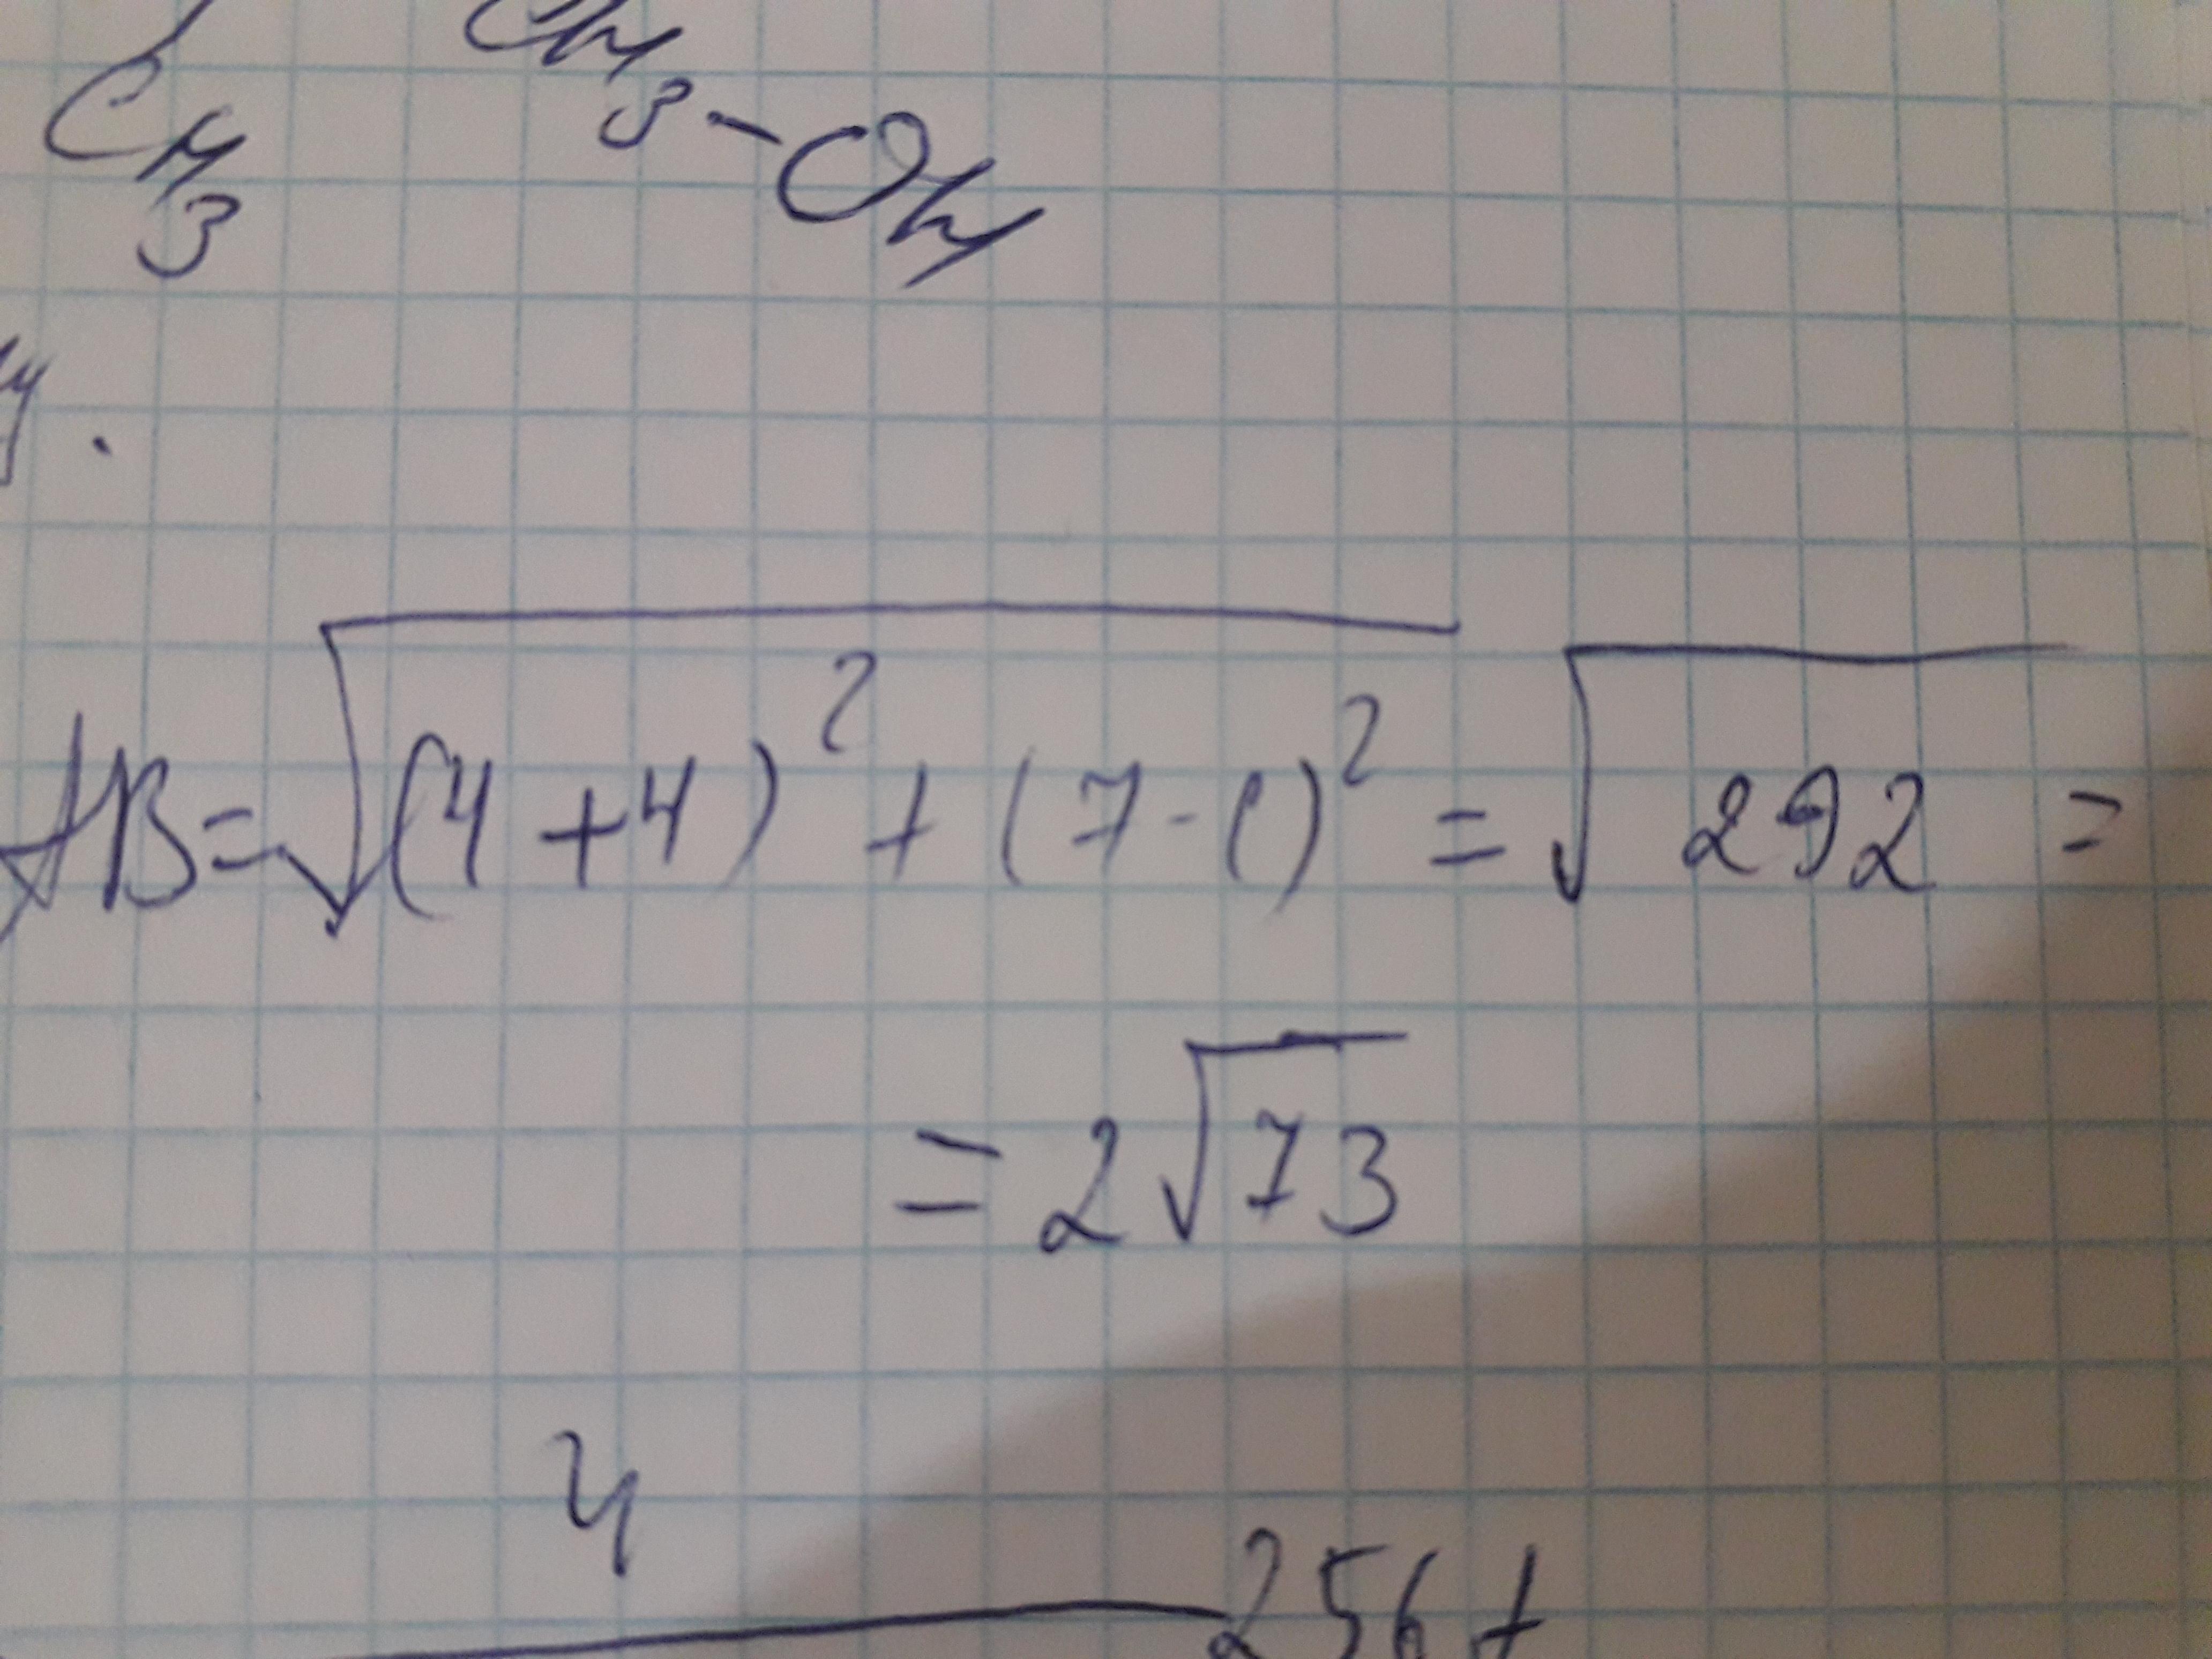 CH3
CH3-OH
y.
AB=√(4+4)²+(7-1)²=√292=
=2√73
4
256+